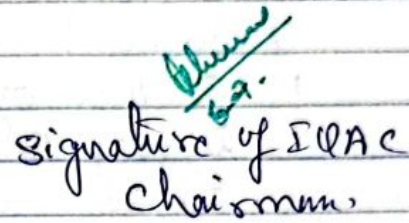 6-9.
signature of IQAC
chairman.